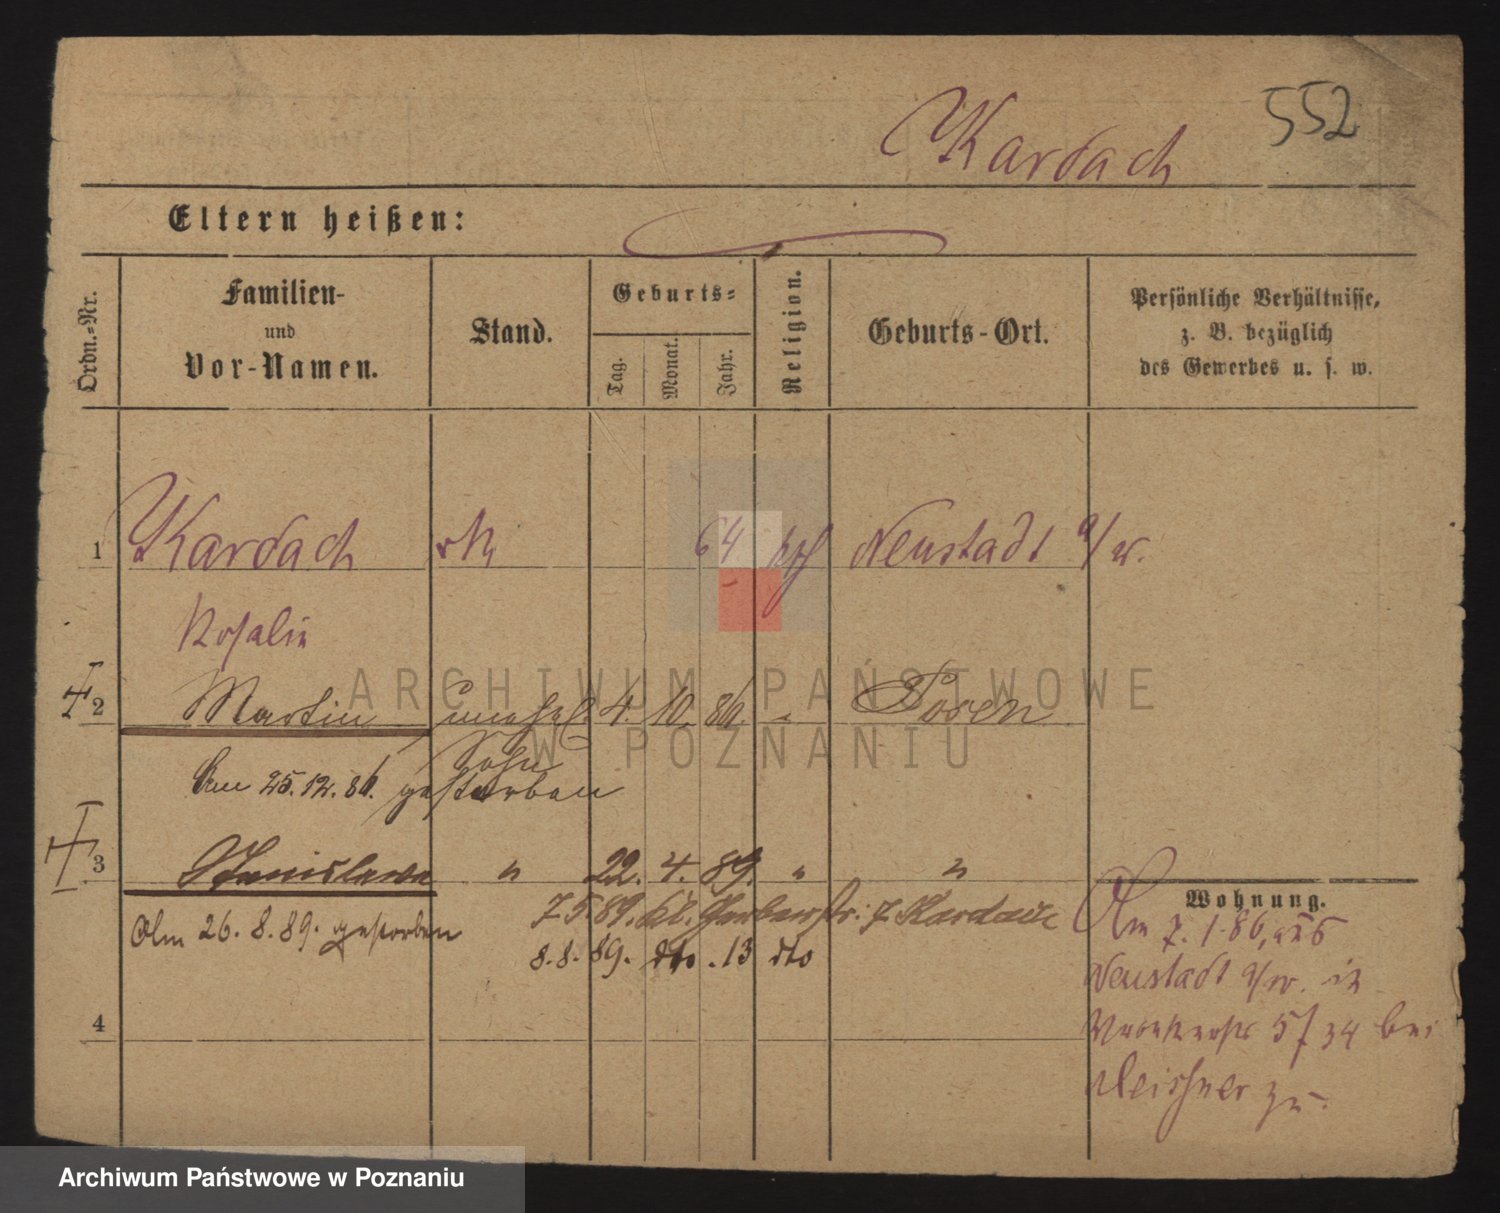 552
Kardach
Eltern heißen:
Ordn.-Nr.
Familien-
und
Vor-Namen.
Stand.
Geburts-
Tag.
Monat.
Jahr.
Religion.
Geburts-Ort.
Persönliche Verhältnisse,
z. B. bezüglich
des Gewerbes u. s. w.
1 Kardach 64 kth Neustadt a/w.
Rosalie
2 Martin unehel. 4. 10. 86. " Posen
Sohn
Am 25.12.86. gestorben
3 Stanislawa " 22. 4. 89. " "
Am 26. 8. 89. gestorben
7.5.89. kl. Gerberstr. 7 Kardach
8.8.89. dto. 13 dto
4
Wohnung.
Am 7.1.86, aus
Neustadt a/w. in
5/ 34 bei
Meissner zu.
ARCHIWUM PAŃSTWOWE
W POZNANIU
Archiwum Państwowe w Poznaniu